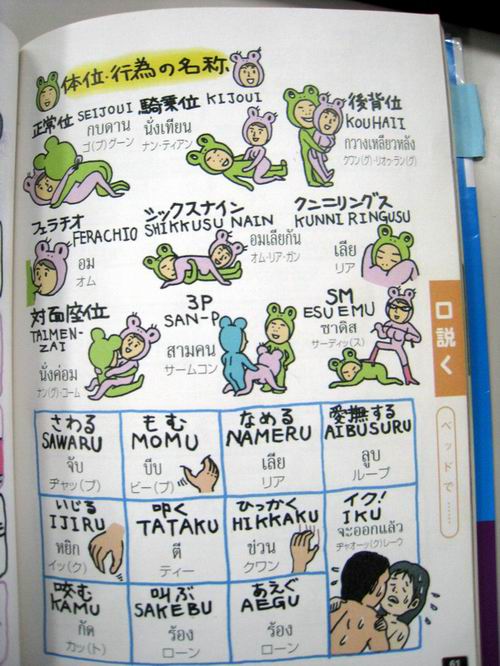 体位・行為の名称
正常位 SEIJOUI
กบดาน
騎乗位 KIJOUI
นั่งเทียน
ナン・ティアン
後背位
KOUHAII
กวางเหลียวหลัง
クワン(グ)・リオゥ・ラン(グ)
フェラチオ
FERACHIO
อม
オム
シックスナイン
SHIKKUSU NAIN
อมเลียกัน
オム・リア・ガン
クンニリングス
KUNNIRINGUSU
เลีย
リア
対面座位
TAIMEN-
ZAI
นั่งค่อม
ナン(グ)・コーム
3P
SAN-P
สามคน
サームコン
SM
ESU EMU
ซาดิส
サーディッ(ス)
さわる
SAWARU
จับ
ヂャッ(プ)
もむ
MOMU
บีบ
ビー(プ)
なめる
NAMERU
เลีย
リア
愛撫する
AIBUSURU
ลูบ
ループ
いじる
IJIRU
หยิก
イッ(ク)
叩く
TATAKU
ตี
ティー
ひっかく
HIKKAKU
ข่วน
クワン
イク!
IKU
จะออกแล้ว
ヂャオーッ(ク)レーウ
咬む
KAMU
กัด
カッ(ト)
叫ぶ
SAKEBU
ร้อง
ローン
あえぐ
AEGU
ร้อง
ローン
口説く
ベッドで……
61